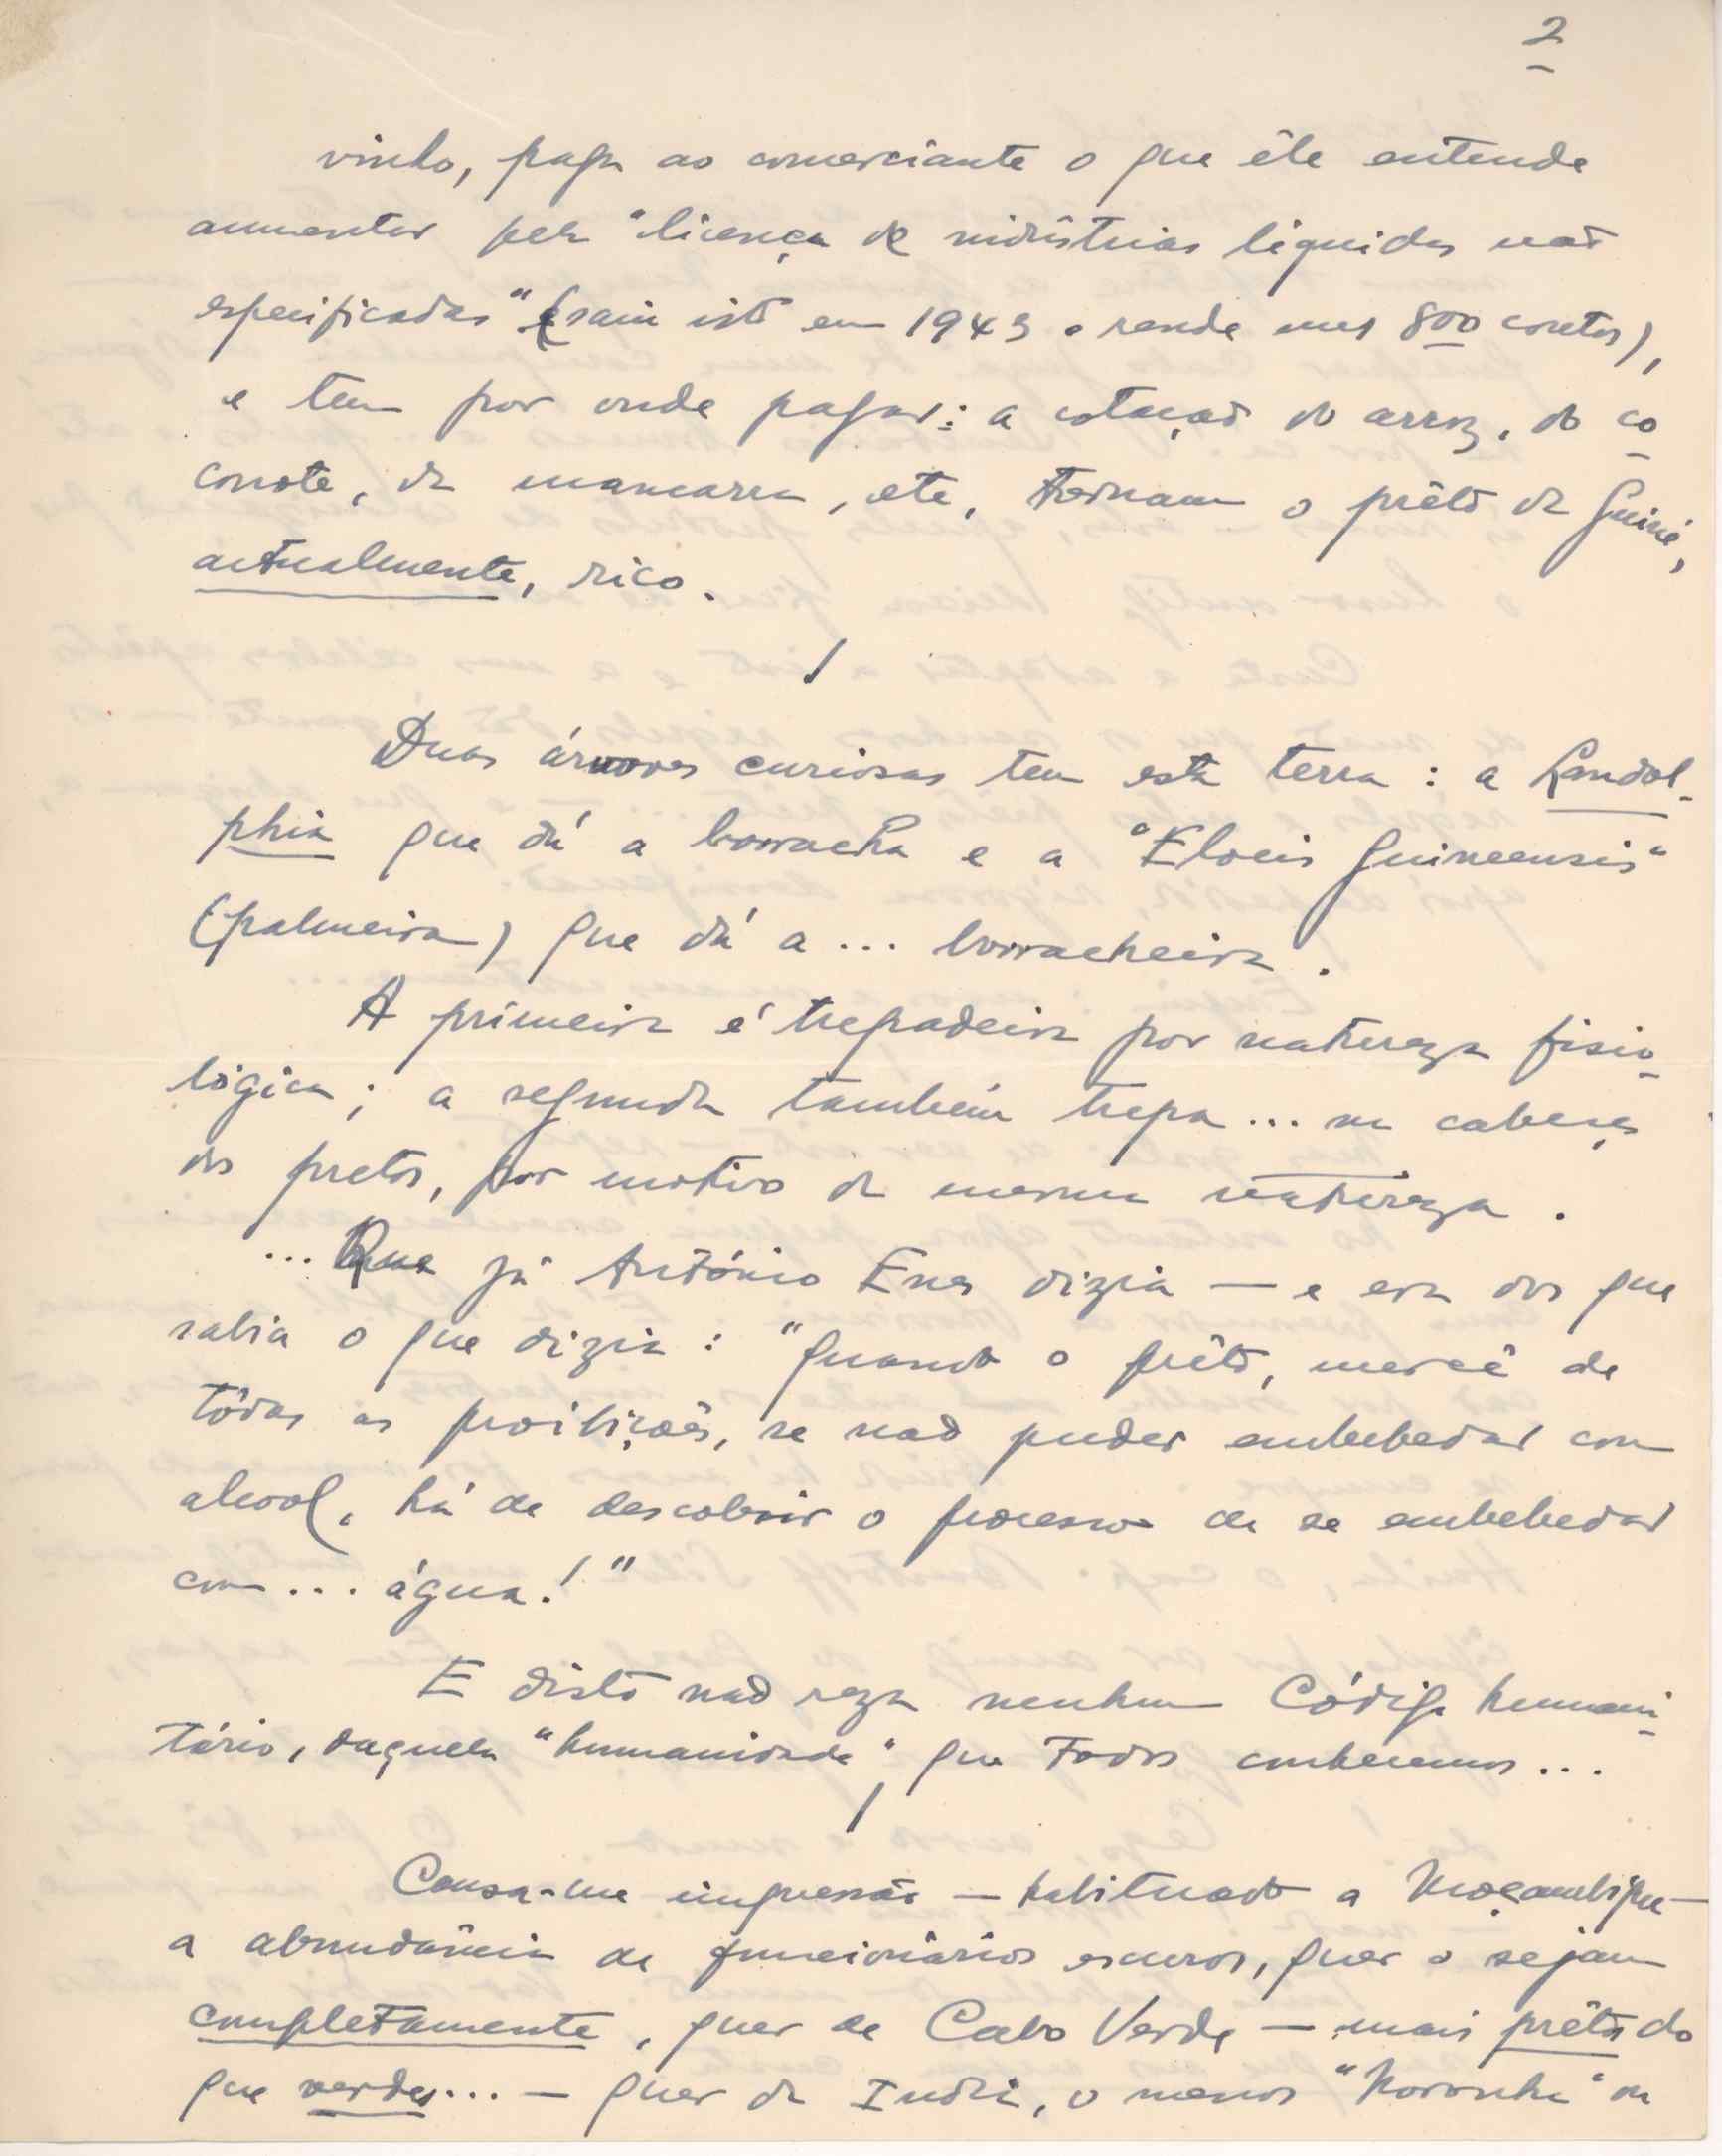 2
vinho, paga ao comerciante o que êle entende
aumentar pela "licença de indústrias liquidas não
especificadas" (saiu isto em 1943 e rende uns 800 contos),
e tem por onde pagar: a cotação do arroz, do co
conote, da mancarra, etc, tornam o prêto da Guiné,
actualmente, rico.
/
Duas árvores curiosas tem esta terra: a Landol-
phia que dá a borracha e a "Eloeis Guineensis"
(palmeira) que dá a ... borracheira.
A primeira é trepadeira por natureza fisio-
lógica; a segunda também trepa ... na cabeça
dos pretos, por motivo da mesma natureza.
... Que já António Enes dizia — e era dos que
sabia o que dizia: "quando o prêto, mercê de
tôdas as proibições, se não puder embebedar com
alcool, há de descobrir o processo de se embebedar
com ... água!"
E disto não reza nenhum Código humani-
tário, daquela "humanidade" que Todos conhecemos ...
/
Causa-me impressão — habituado a Moçambique —
a abundância de funcionários escuros, quer o sejam
completamente, quer de Cabo Verde — mais prêtos do
que verdes ... — quer da India, o menos "Noronha" ou